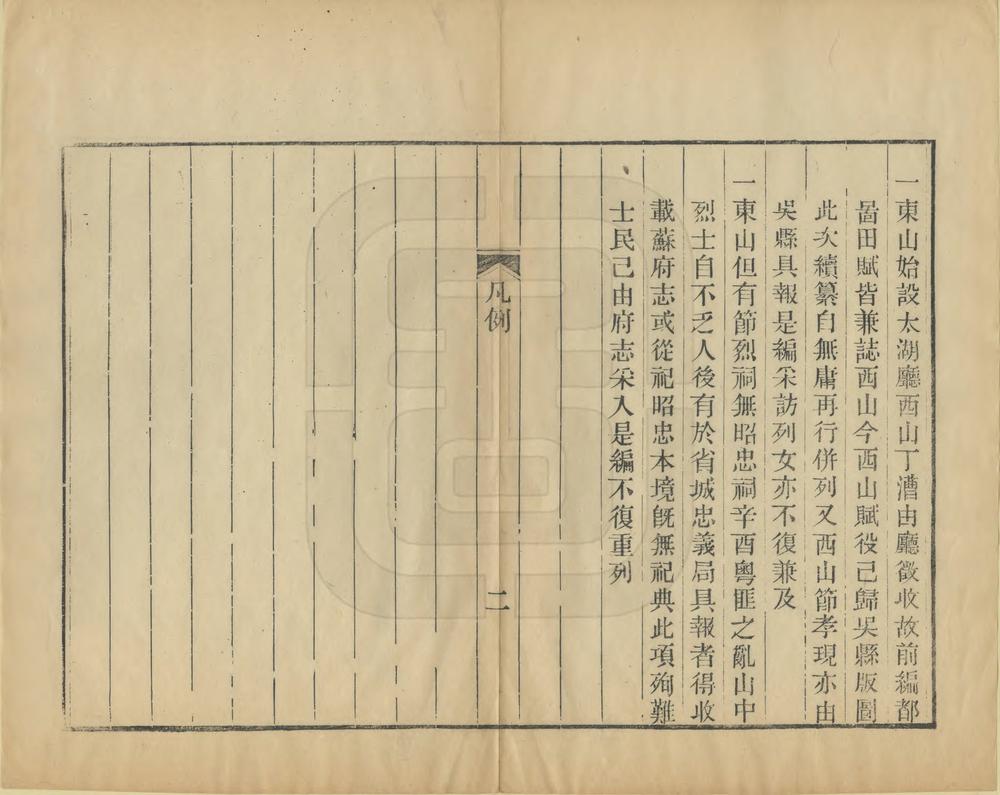 一東山始設太湖廳西山丁漕由廳徵收故前編都
啚田賦皆兼誌西山今西山賦役已歸吳縣版圖
此次續纂自無庸再行併列又西山節孝現亦由
吳縣具報是編采訪列女亦不復兼及
一東山但有節烈祠無昭忠祠辛酉粵匪之亂山中
烈士自不乏人後有於省城忠義局具報者得收
載蘇府志或從祀昭忠本境旣無祀典此項殉難
士民已由府志采入是編不復重列
凡例
二